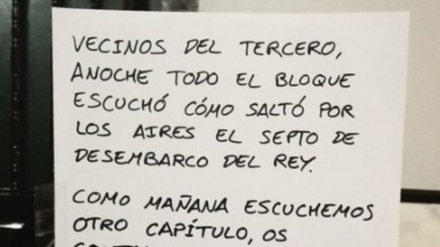 VECINOS DEL TERCERO,
ANOCHE TODO EL BLOQUE
ESCUCHÓ CÓMO SALTÓ POR
LOS AIRES EL SEPTO DE
DESEMBARCO DEL REY.
COMO MAÑANA ESCUCHEMOS
OTRO CAPÍTULO, OS